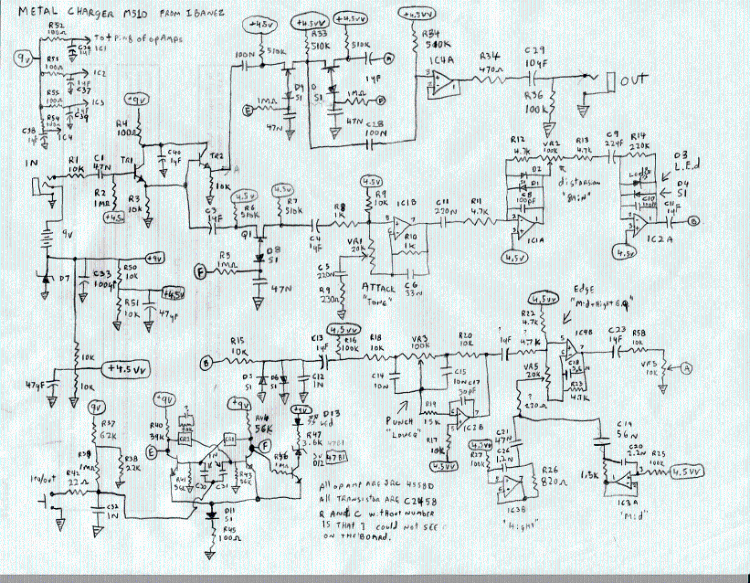 METAL CHARGER MS10 FROM IBANEZ
R52
100Ω
To + Pins of opAmps
1µF
IC1
9v
100Ω
IC2
1µF
C37
100Ω
IC3
1µF
C39
IC4
C38
1µF
+9v
R4
100Ω
C40
1µF
TR1
TR2
IN
R1
10K
C1
47N
R2
1MR
+4.5
R3
10K
10K
100N
+4.5V
510K
+4.5VV
R33
510K
+4.5VV
510K
D9
S1
D
S1
1MΩ
E
47N
1MΩ
F
47N
1µF
A
C28
100N
+4.5VV
R34
510K
IC4A
R34
470Ω
C29
10µF
R36
100K
OUT
9V
D7
C33
100µF
+9V
R50
10K
+4.5V
R51
10K
47µF
10K
+4.5VV
47µF
10K
C3
1µF
4.5V
R6
510K
Q1
D8
S1
F
R3
1MΩ
47N
4.5V
R7
510K
C4
1µF
R8
1K
4.5V
R9
10K
VR1
20K
C5
220N
R9
230Ω
ATTACK
"Tone"
IC1B
R10
1K
C6
33N
C11
220N
R11
4.7K
R12
4.7K
VR2
100K
R13
4.7K
C9
22µF
R14
220K
D2
D1
C8
100pF
distorsion
"gain"
IC1A
4.5V
D3
L.E.d
D4
S1
C10
IC2A
4.5V
C11
1µF
B
B
R15
10K
D5
S1
D6
S1
C12
1N
C13
1µF
4.5VV
R16
100K
R18
10K
VR3
100K
R20
10K
C14
10N
C15
10N
C17
50pF
R19
15K
IC2B
R17
10K
4.5VV
PUNCH
"Lower"
1µF
4.7K
4.5VV
R22
4.7K
Edge
"Mid+Hight E.q"
IC4B
C18
R23
4.7K
C23
1µF
R58
10K
VR5
A
VR5
20K
270Ω
C21
47N
C26
1.2N
R27
100K
4.5VV
IC3B
R26
820Ω
"Hight"
C19
56N
C20
2.2N
R25
100K
4.5VV
1.5K
IC3A
"Mid"
9V
R37
62K
R38
22K
R39
1MΩ
In/out
R42
22Ω
C32
1N
9V
R40
39K
E
+9V
R44
56K
F
1N
R41
R43
R46
1MΩ
+9v
D13
Led
R47
3.6K
4001
D12
D11
S1
R45
100Ω
All opamp are JRC 4558D
All transistor are C2458
R and C without number
Is that I could not see
on the board.